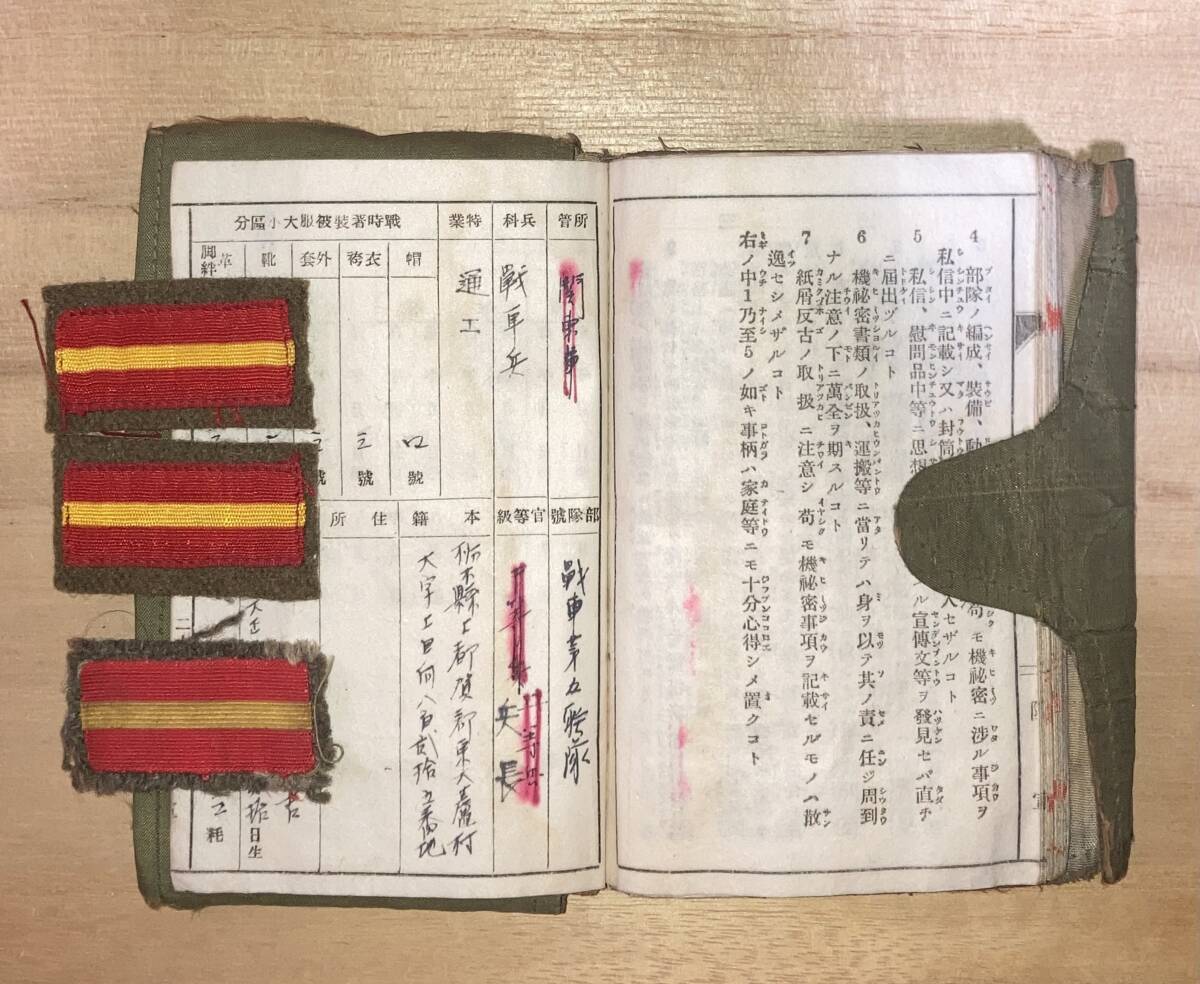 4 部隊ノ編成、裝備、動 苟モ機祕密ニ涉ル事項ヲ
私信中ニ記載シ又ハ封筒 入セザルコト
5 私信、慰問品中等ニ思想 ル宣傳文等ヲ發見セバ直チ
ニ屆出ヅルコト
6 機祕密書類ノ取扱、運搬等ニ當リテハ身ヲ以テ其ノ責ニ任ジ周到
ナル注意ノ下ニ萬全ヲ期スルコト
7 紙屑反古ノ取扱ニ注意シ苟モ機祕密事項ヲ記載セルモノハ散
逸セシメザルコト
右ノ中1乃至5ノ如キ事柄ハ家庭等ニモ十分心得シメ置クコト
所管
關東軍
兵科
戰車兵
特業
通工
戰時著裝被服大小區分
帽
口號
衣袴
三號
外套
三號
靴
革脚絆
部隊號
戰車第五聯隊
官等級
兵長
本籍
栃木縣上都賀郡東大蘆村
大字上日向八百貳拾五番地
住所
日生
耗